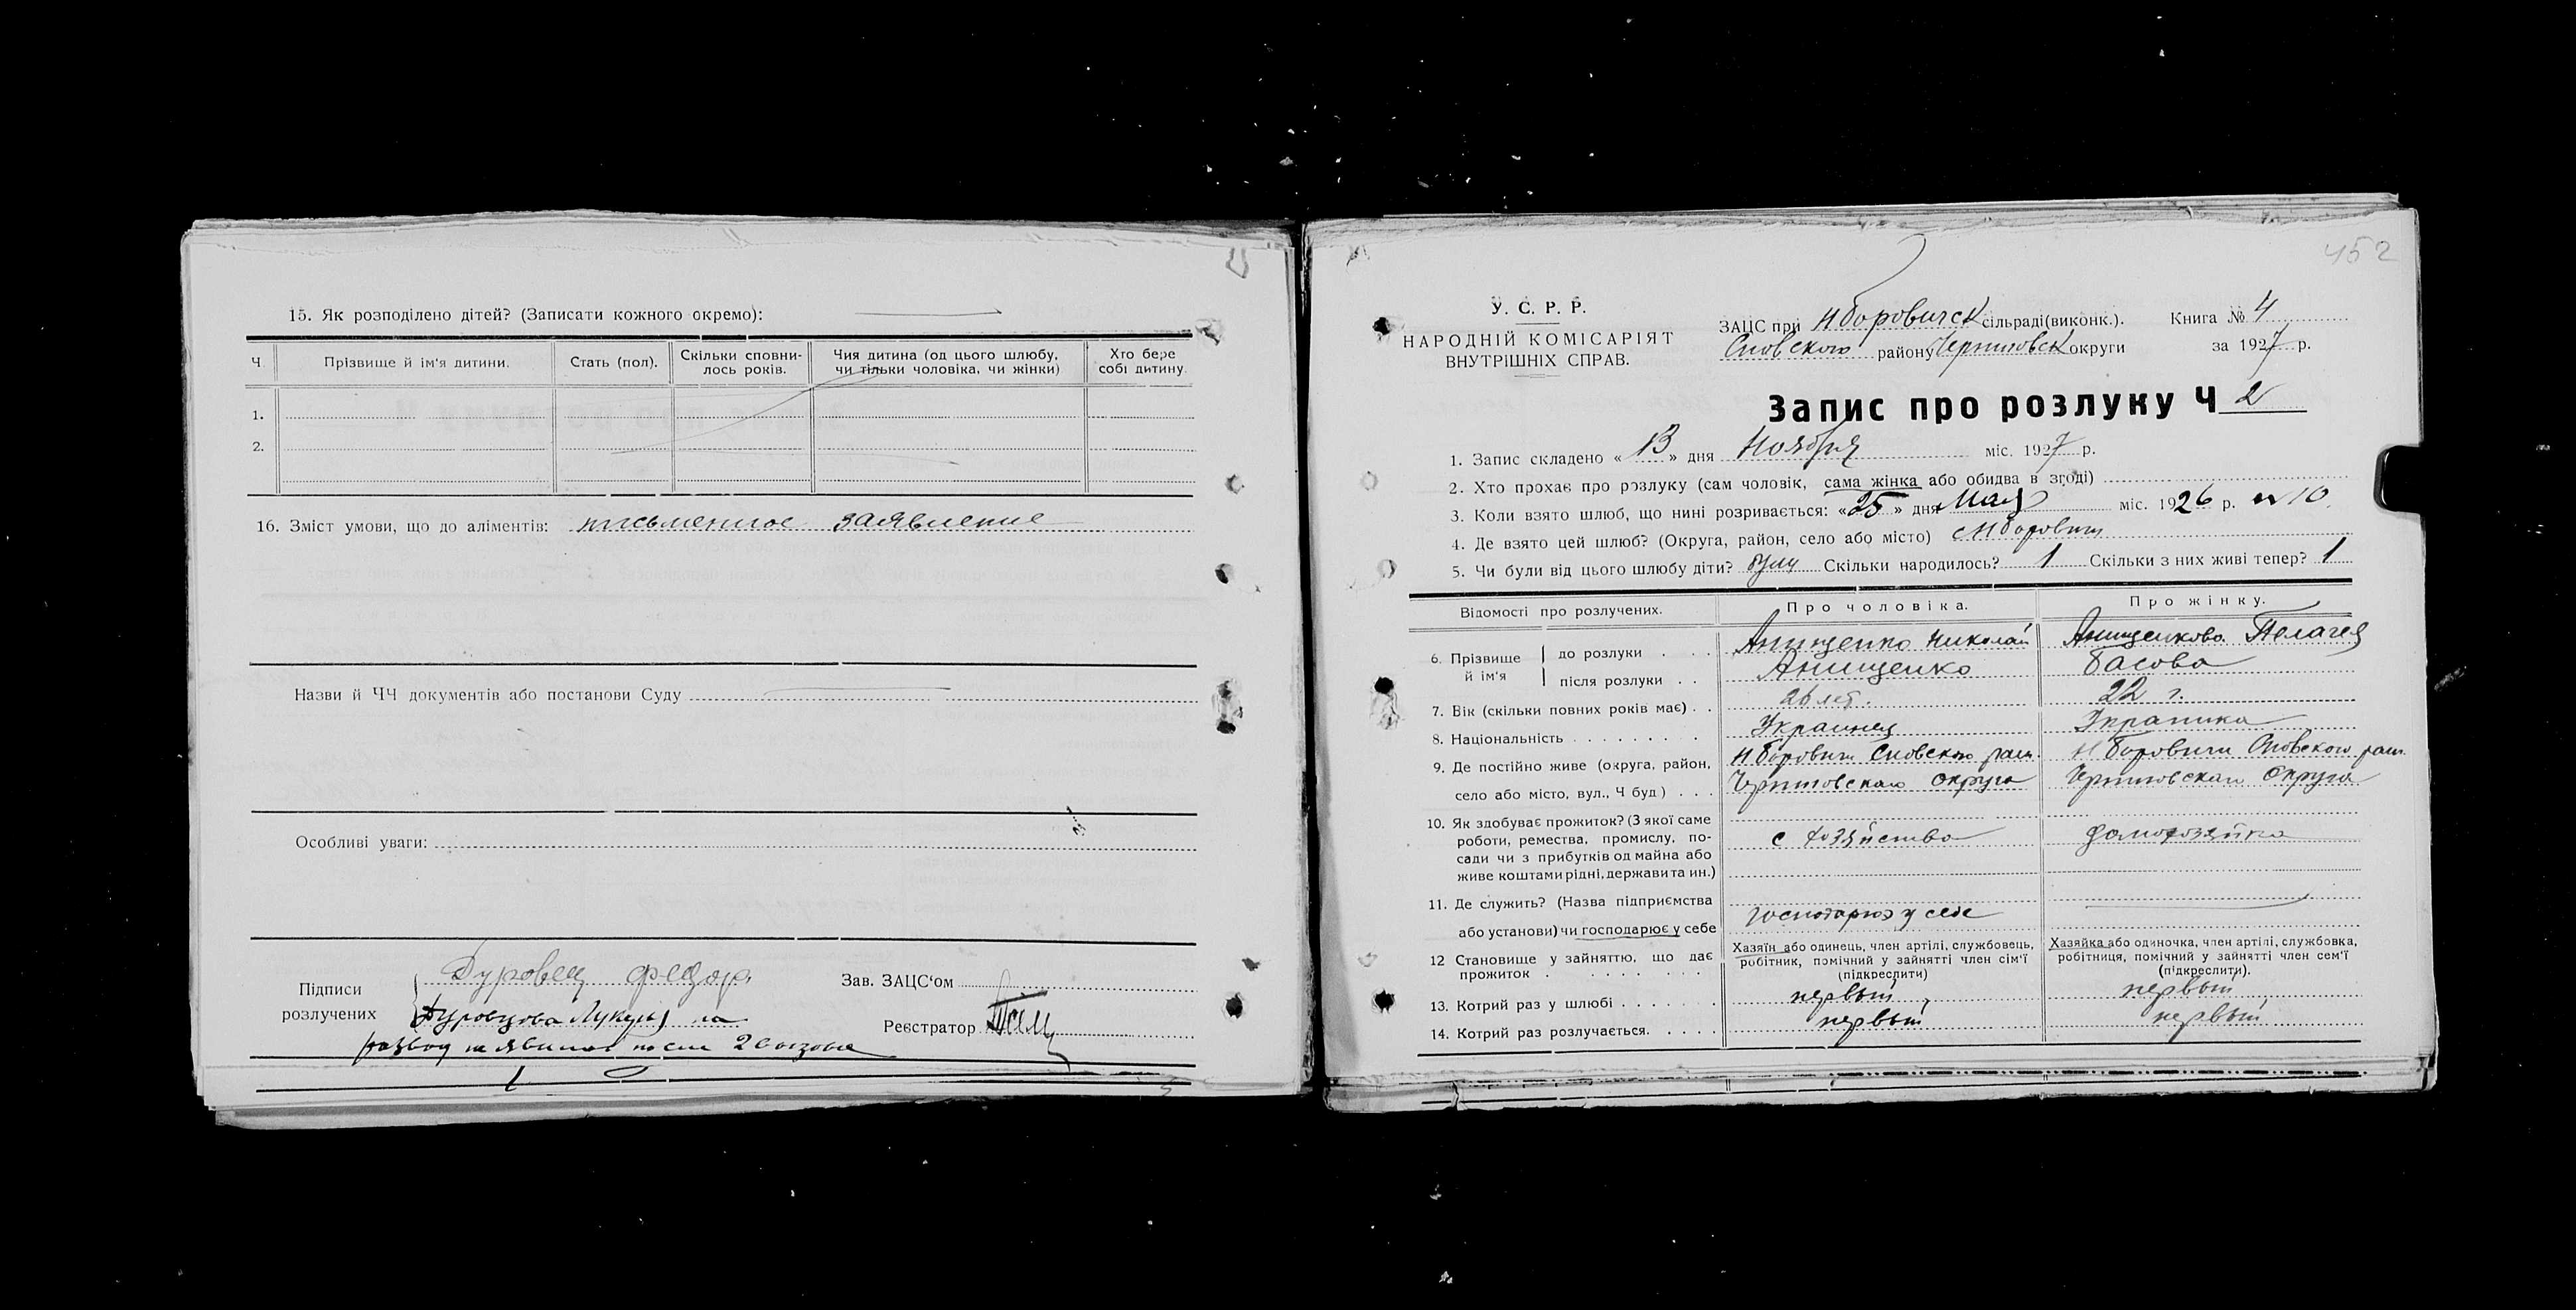 15. Як розподілено дітей? (Записати кожного окремо):
Ч
Прізвище й ім'я дитини.
Стать (пол).
Скільки сповни-
лось років.
Чия дитина (од цього шлюбу,
чи тільки чоловіка, чи жінки)
Хто бере
собі дитину.
1.
2.
16. Зміст умови, що до аліментів: письменное заявление
Назви й ЧЧ документів або постанови Суду
Особливі уваги:
Підписи
розлучених
Дуровец Федор
Дуровцова Лукерья на
развод не явилась после 2 вызова
Зав. ЗАЦС'ом
Реєстратор
452
У. С. Р. Р.
НАРОДНІЙ КОМІСАРІЯТ
ВНУТРІШНІХ СПРАВ.
ЗАЦС при Н боровичск сільраді (виконк.). Книга № 4
Сновского району Черниговск округи за 1927 р.
Запис про розлуку Ч 2
1. Запис складено « 13 » дня Ноября міс. 1927 р.
2. Хто прохає про розлуку (сам чоловік, сама жінка або обидва в згоді)
3. Коли взято шлюб, що нині розривається: « 25 » дня Мая міс. 1926 р. № 10
4. Де взято цей шлюб? (Округа, район, село або місто) с Н боровичи
5. Чи були від цього шлюбу діти? були Скільки народилось? 1 Скільки з них живі тепер? 1
Відомості про розлучених. Про чоловіка. Про жінку.
6. Прізвище й ім'я
до розлуки Анищенко Николай Анищенкова Пелагея
після розлуки Анищенко Басова
7. Вік (скільки повних років має) 26 лет. 22 г.
8. Національність Украинец Украинка
9. Де постійно живе (округа, район,
село або місто, вул., Ч буд)
Н Боровичи Сновского рай.
Черниговская округа
Н Боровичи Сновского рай.
Черниговская округа
10. Як здобуває прожиток? (З якої саме
роботи, ремества, промислу, по-
сади чи з прибутків од майна або
живе коштами рідні, держави та ин.)
с хозяйства
домохозяйка
11. Де служить? (Назва підприємства
або установи) чи господарює у себе
господарює у себе
12 Становище у зайняттю, що дає
прожиток
Хазяїн або одинець, член артілі, службовець,
робітник, помічний у зайнятті член сім'ї
(підкреслити)
Хазяйка або одиночка, член артілі, службовка,
робітниця, помічний у зайнятті член сем'ї
(підкреслити).
13. Котрий раз у шлюбі первый первый
14. Котрий раз розлучається. первый первый